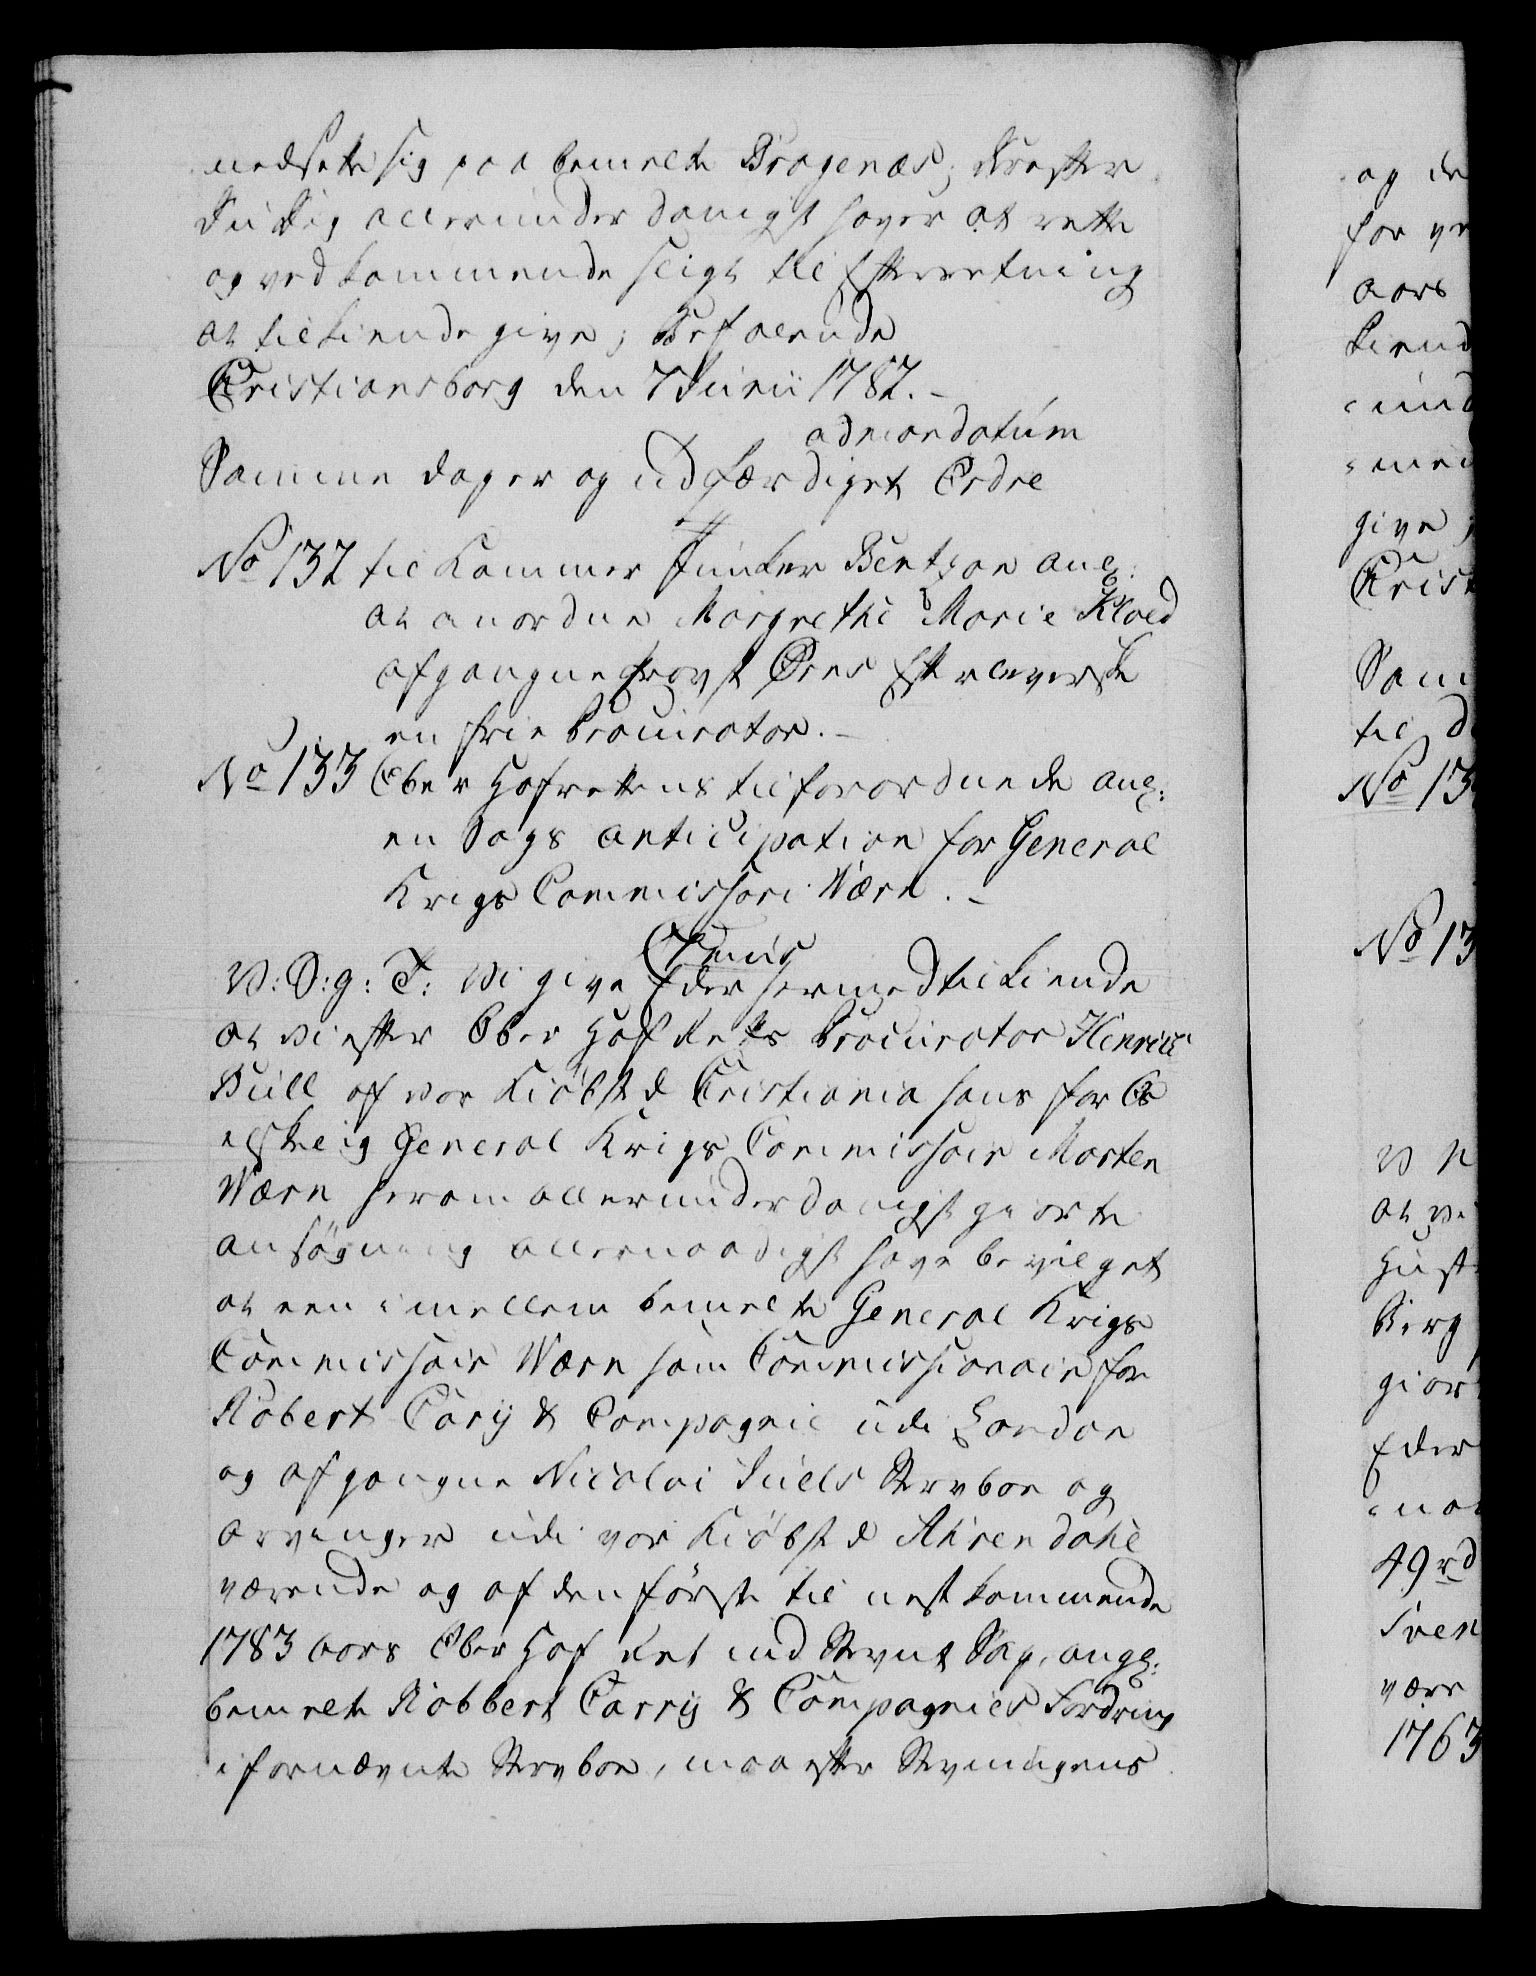 nedsette sig paa bemelte Bragenæs; Hvorefter
Du Dig allerunderdanigst haver at rette
og vedkommende sligt til Efterretning
at tilkiende give; Befalende
Christiansborg den 7 Junii 1782.
admandatum
Samme dag er og udfærdiget Ordre
No 132 til Kammer Junker Bentzon ang:
at anordne Margrethe Marie Kloed
afgangne Provst Efterleverske
en frie Procurator.
No 133 Ober Hofrettens tilforordnede ang:
en Sags anticipation for General
Krigs Commissair Wærn.
V: S: g: T: Vi give Eder hermed tilkiende
at Vi efter Ober Hof Rets Procurator Henrich
Bull af vor Kiøbstd Christiania hans for Os
elskelig General Krigs Commissair Morten
Wærn herom allerunderdanigst giorte
ansøgning allernaadigst have bevilget
at een imellem bemelte General Krigs
Commissair Wærn som Commissionair for
Robert Cary & Compagnie udi London
og afgangne Nicolai Juels Sterboe og
arvinger udi vor Kiøbstd Ahrendahl
værende og af den første til nestkommende
1783 aars Ober Hof Ret indstevnt Sag, ang:
bemelte Robbert Carry & Compagnies Fordring
i fornævnte Sterboe, maa efter Stevningens
og de
for ve
aars
kiend
give
Christ
Sam
til d
No 13
No 13
V N
at vi
Hust
Berg
gior
Eder
49rd
Sven
være
1763